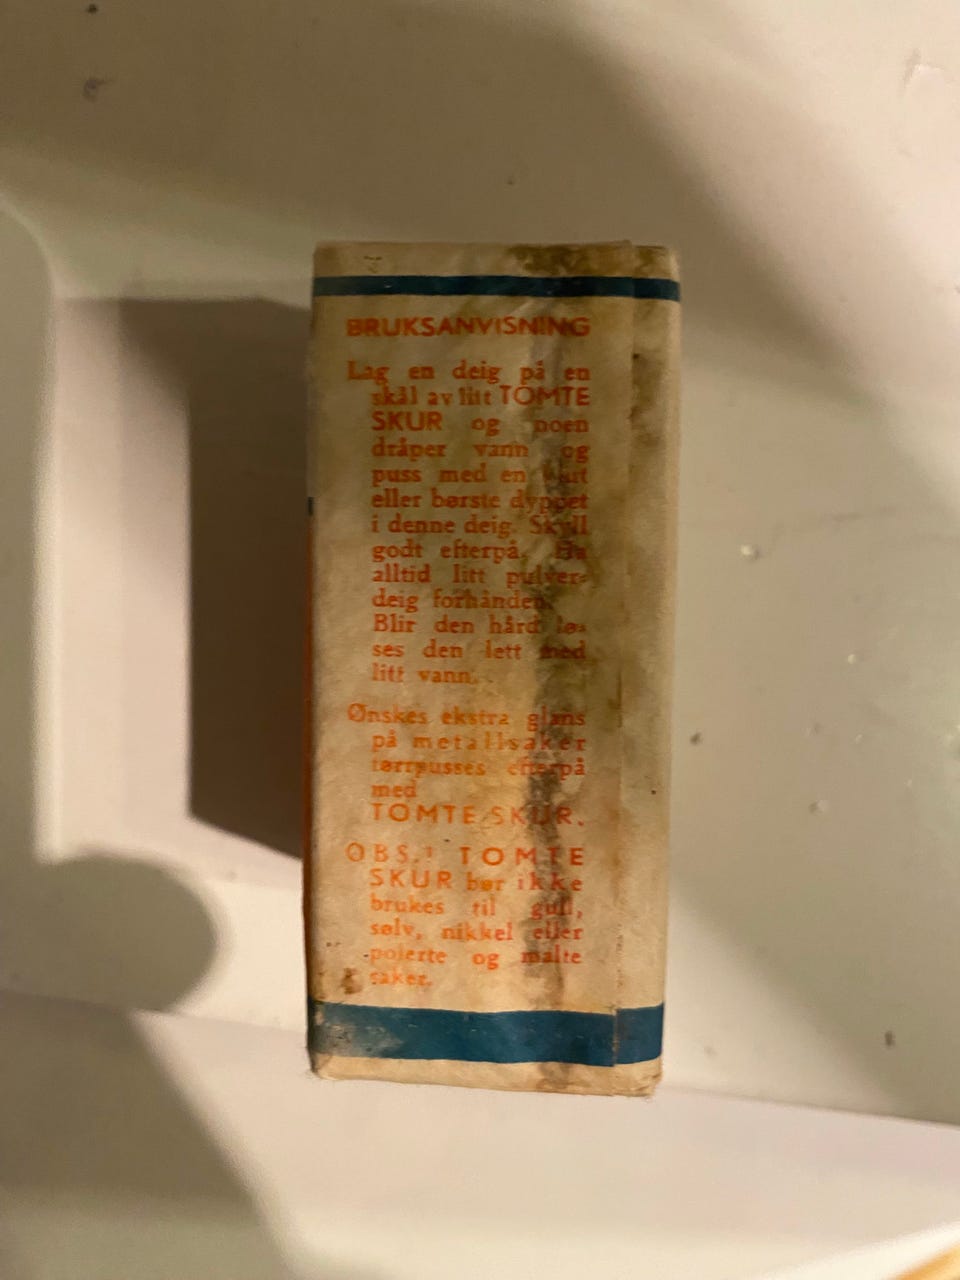 BRUKSANVISNING
Lag en deig på en
skål av litt TOMTE
SKUR og noen
dråper vann og
puss med en
eller børste dyppet
i denne deig. Skyll
godt efterpå. Ha
alltid litt pulver-
deig forhånden.
Blir den hård lø-
ses den lett med
litt vann.
Ønskes ekstra glans
på metallsaker
tørrpusses efterpå
med
TOMTE SKUR.
OBS.! TOMTE
SKUR bør ikke
brukes til gull,
sølv, nikkel eller
polerte og malte
saker.